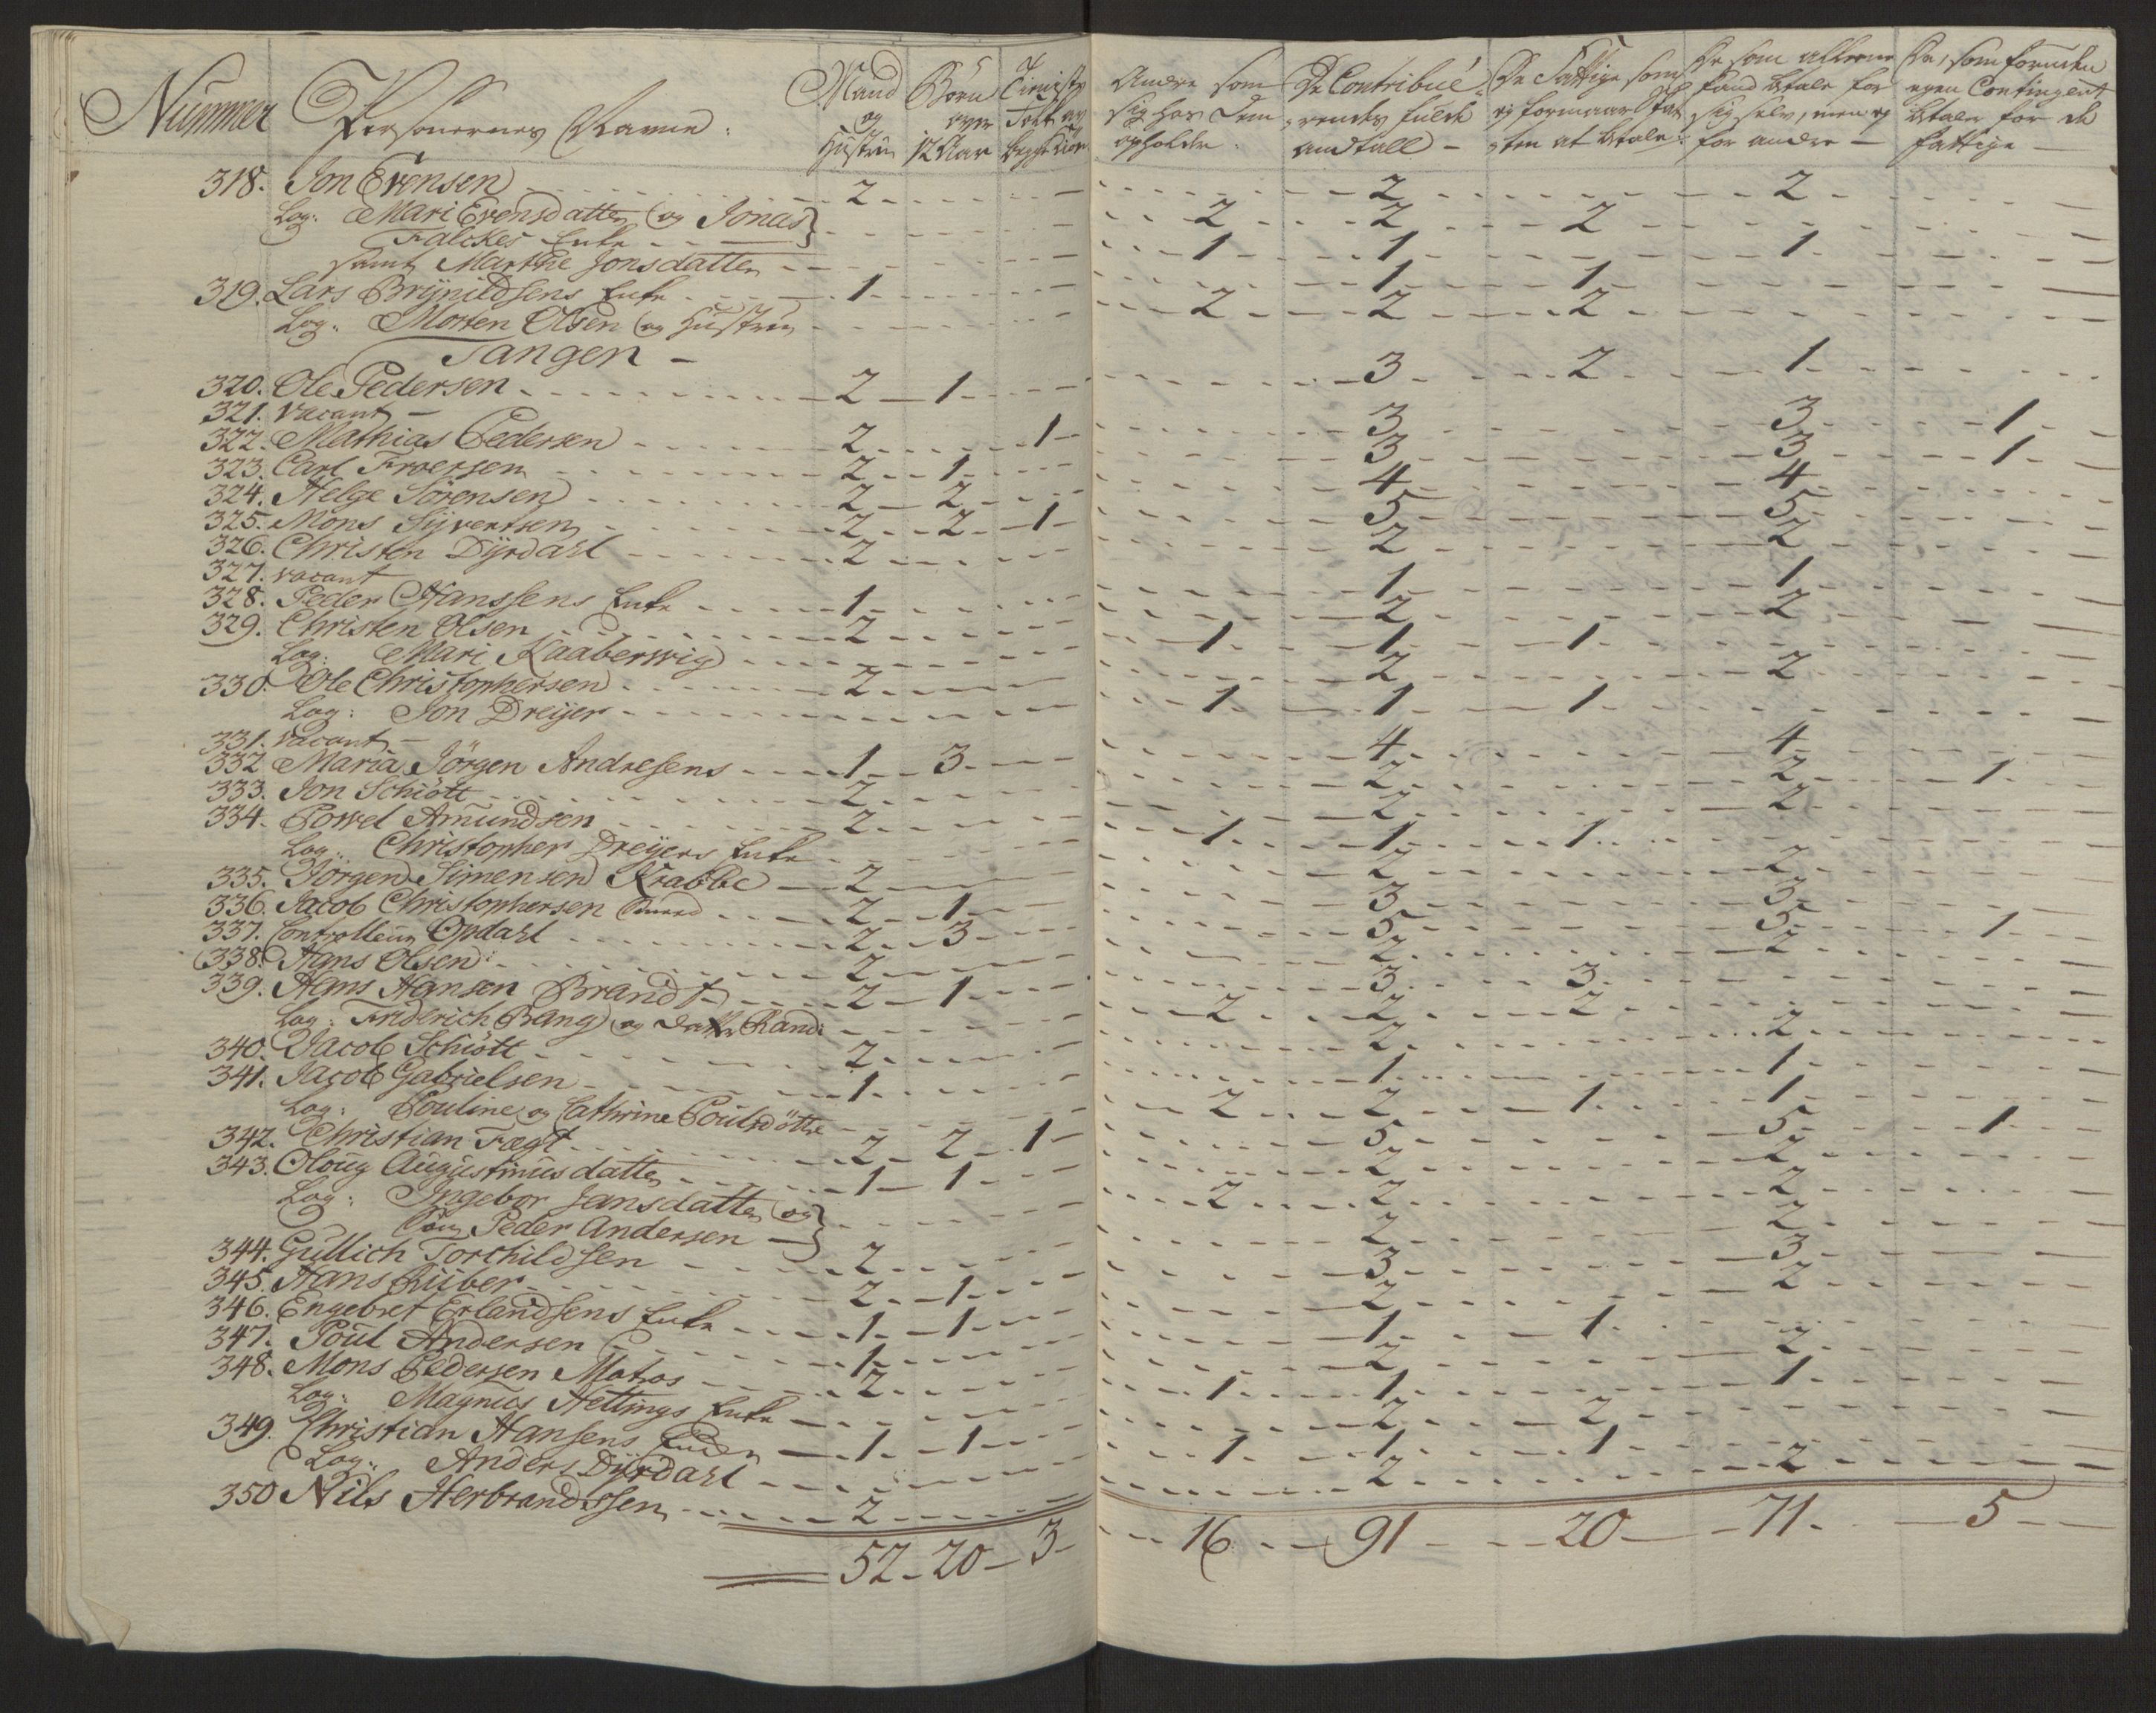 Nummer Personernes Navne. Mand og Hustru Börn over 12 Aar Tieniste Folk av begge Kiön Andre som sig hos dem opholder. De Contribuerendes fulde andtall - De Fattige som ej formaar Skatten at betale: De som alleene kand betale for sig selv, men ej for andre - De, som foruden egen Contingent betaler for de fattige -
318. Jon Evensen 2 2 2
Log: Mari Evensdatter og Jonas 2 2 2
Falckes Enke
samt Marthe Jonsdatter 1 1 1
319. Lars Brÿnildsens Enke 1 1 1
Log: Morten Olsen og Hustrue 2 2 2
Tangen -
320. Ole Pedersen 2 1 3 2 1
321. vacant -
322. Mathias Pedersen 2 1 3 3 1
323. Carl Froersen 2 1 3 3 1
324. Helge Sörensen 2 2 4 4
325. Mons Sÿvertsen 2 2 1 5 5
326. Christen Dÿrdahl 2 2 2
327. vacant
328. Peder Hanssens Enke 1 1 1
329. Christen Olsen 2 2 2
Log: Mari Kaaberwig 1 1 1
330. Ole Christophersen 2 2 2
Log: Jon Dreÿer 1 1 1
331. vacant -
332 Maria Jörgen Andresens 1 3 4 4
333. Jon Schiött 2 2 2 1
334. Powel Amundsen 2 2 2
Log: Christopher Dreÿers Enke 1 1 1
335. Jörgen Simensen Krabbe 2 2 2
336. Jacob Christophersen 2 1 3 3
337. Controlleur Opdahl 2 3 5 5 1
338. Hans Olsen 2 2 2
339. Hans Hansen Brandt 2 1 3 3
Log: Friderich Bang og datter Randi 2 2 2
340. Jacob Schiött 2 2 2
341. Jacob Gabrielsen 1 1 1
Log: Pouline og Cathrine Poulsdöttre 2 2 1 1
342. Christian Fægt 2 2 1 5 5 1
343. Oloug Augustinusdatter 1 1 2 2
Log: Ingebor Jansdatter og 2 2 2
Sön Peder Andersen
344. Gullich Torchildsen 2 2 2
345. Hans Riiber 2 1 3 3
346. Engebret Erlandsens Enke 1 1 2 2
347. Poul Andersen 1 1 1
348. Mons Pedersen Matros 2 2 2
Log: Magnus Hettings Enke 1 1 1
349. Christian Hansens Enke 1 1 2 2
Log: Anders Dÿrdahl 1 1 1
350 Nils Herbrandssen 2 2 2
52 20 3 16 91 20 71 5